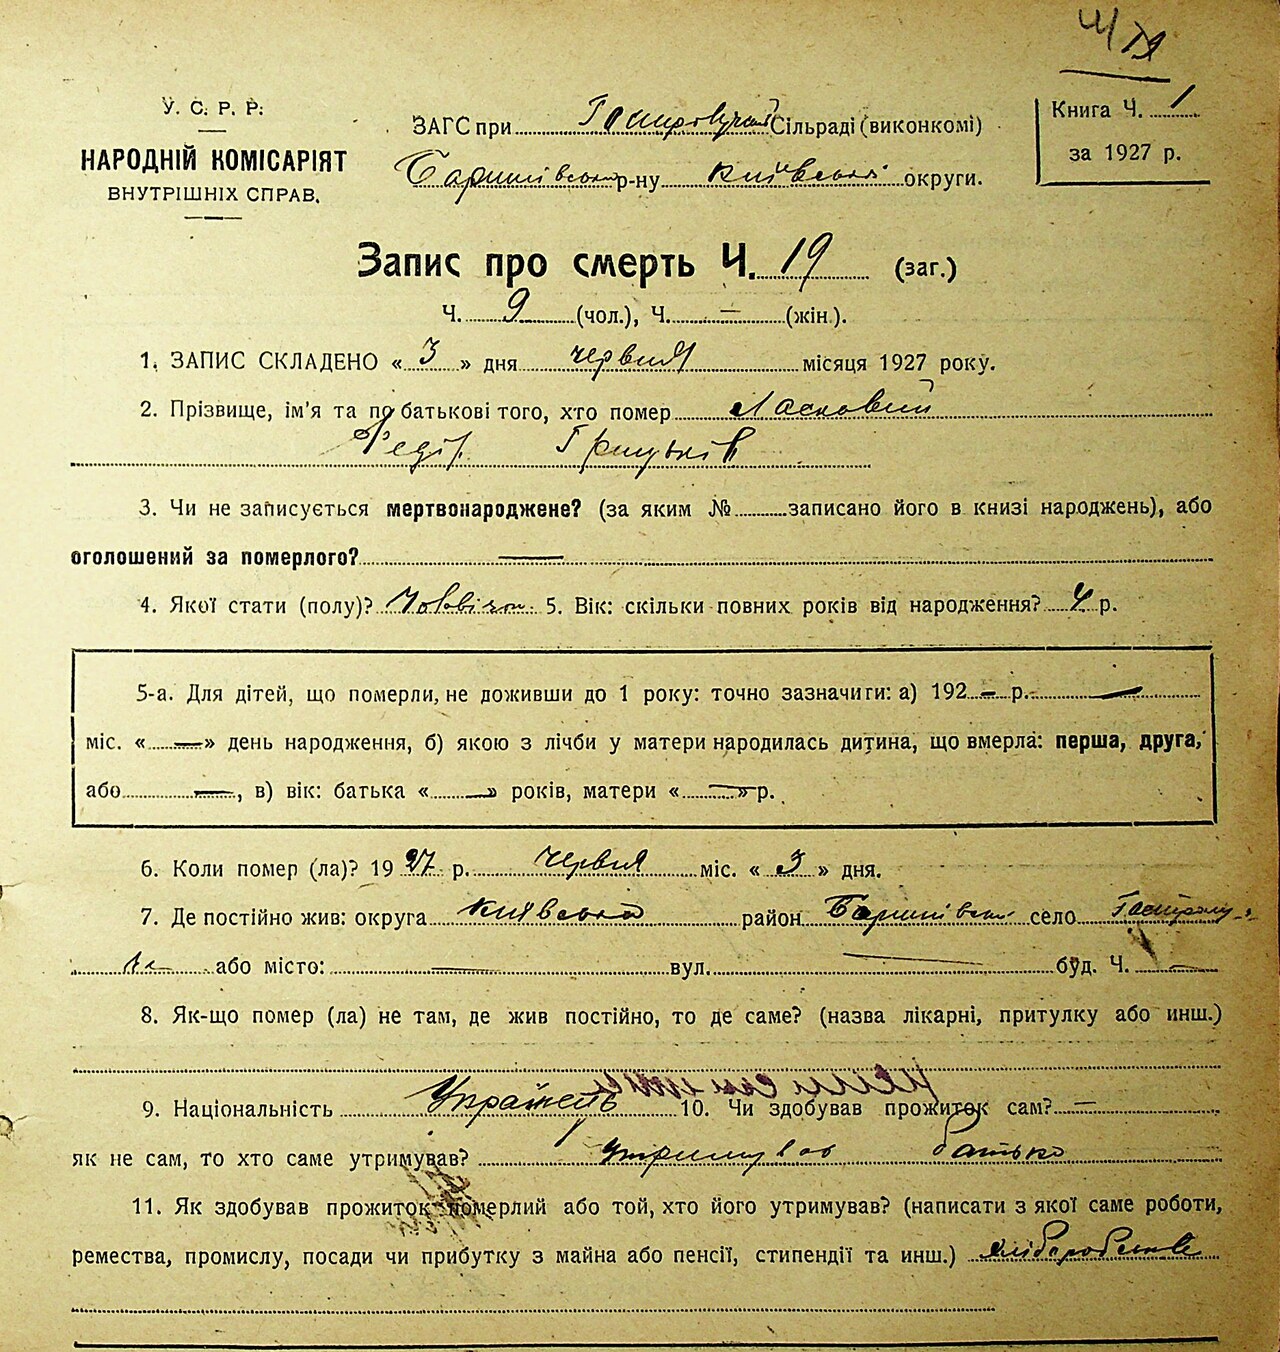 У. С. Р. Р.
НАРОДНІЙ КОМІСАРІЯТ
ВНУТРІШНІХ СПРАВ.
ЗАГС при Сільраді (виконкомі)
Баришівському р-ну Київської округи.
Книга Ч. 1
за 1927 р.
Запис про смерть Ч. 19 (заг.)
Ч. 9 (чол.), Ч. — (жін.).
1. ЗАПИС СКЛАДЕНО « 3 » дня червня місяця 1927 року.
2. Прізвище, ім'я та по батькові того, хто помер Ласковий
Федір Грицьків
3. Чи не записується мертвонароджене? (за яким № записано його в книзі народжень), або
оголошений за померлого? —
4. Якої стати (полу)? Чоловічої 5. Вік: скільки повних років від народження? 4 р.
5-а. Для дітей, що померли, не доживши до 1 року: точно зазначити: а) 192 — р. —
міс. « — » день народження, б) якою з лічби у матери народилась дитина, що вмерла: перша, друга,
або — , в) вік: батька « — » років, матери « — » р.
6. Коли помер (ла)? 19 27 р. червня міс. « 3 » дня.
7. Де постійно жив: округа Київська район Баришівський село
або місто: — вул. — буд. Ч. —
8. Як-що помер (ла) не там, де жив постійно, то де саме? (назва лікарні, притулку або инш.)
9. Національність Українець 10. Чи здобував прожиток сам? —
як не сам, то хто саме утримував? утримував батько
11. Як здобував прожиток померлий або той, хто його утримував? (написати з якої саме роботи,
ремества, промислу, посади чи прибутку з майна або пенсії, стипендії та инш.)